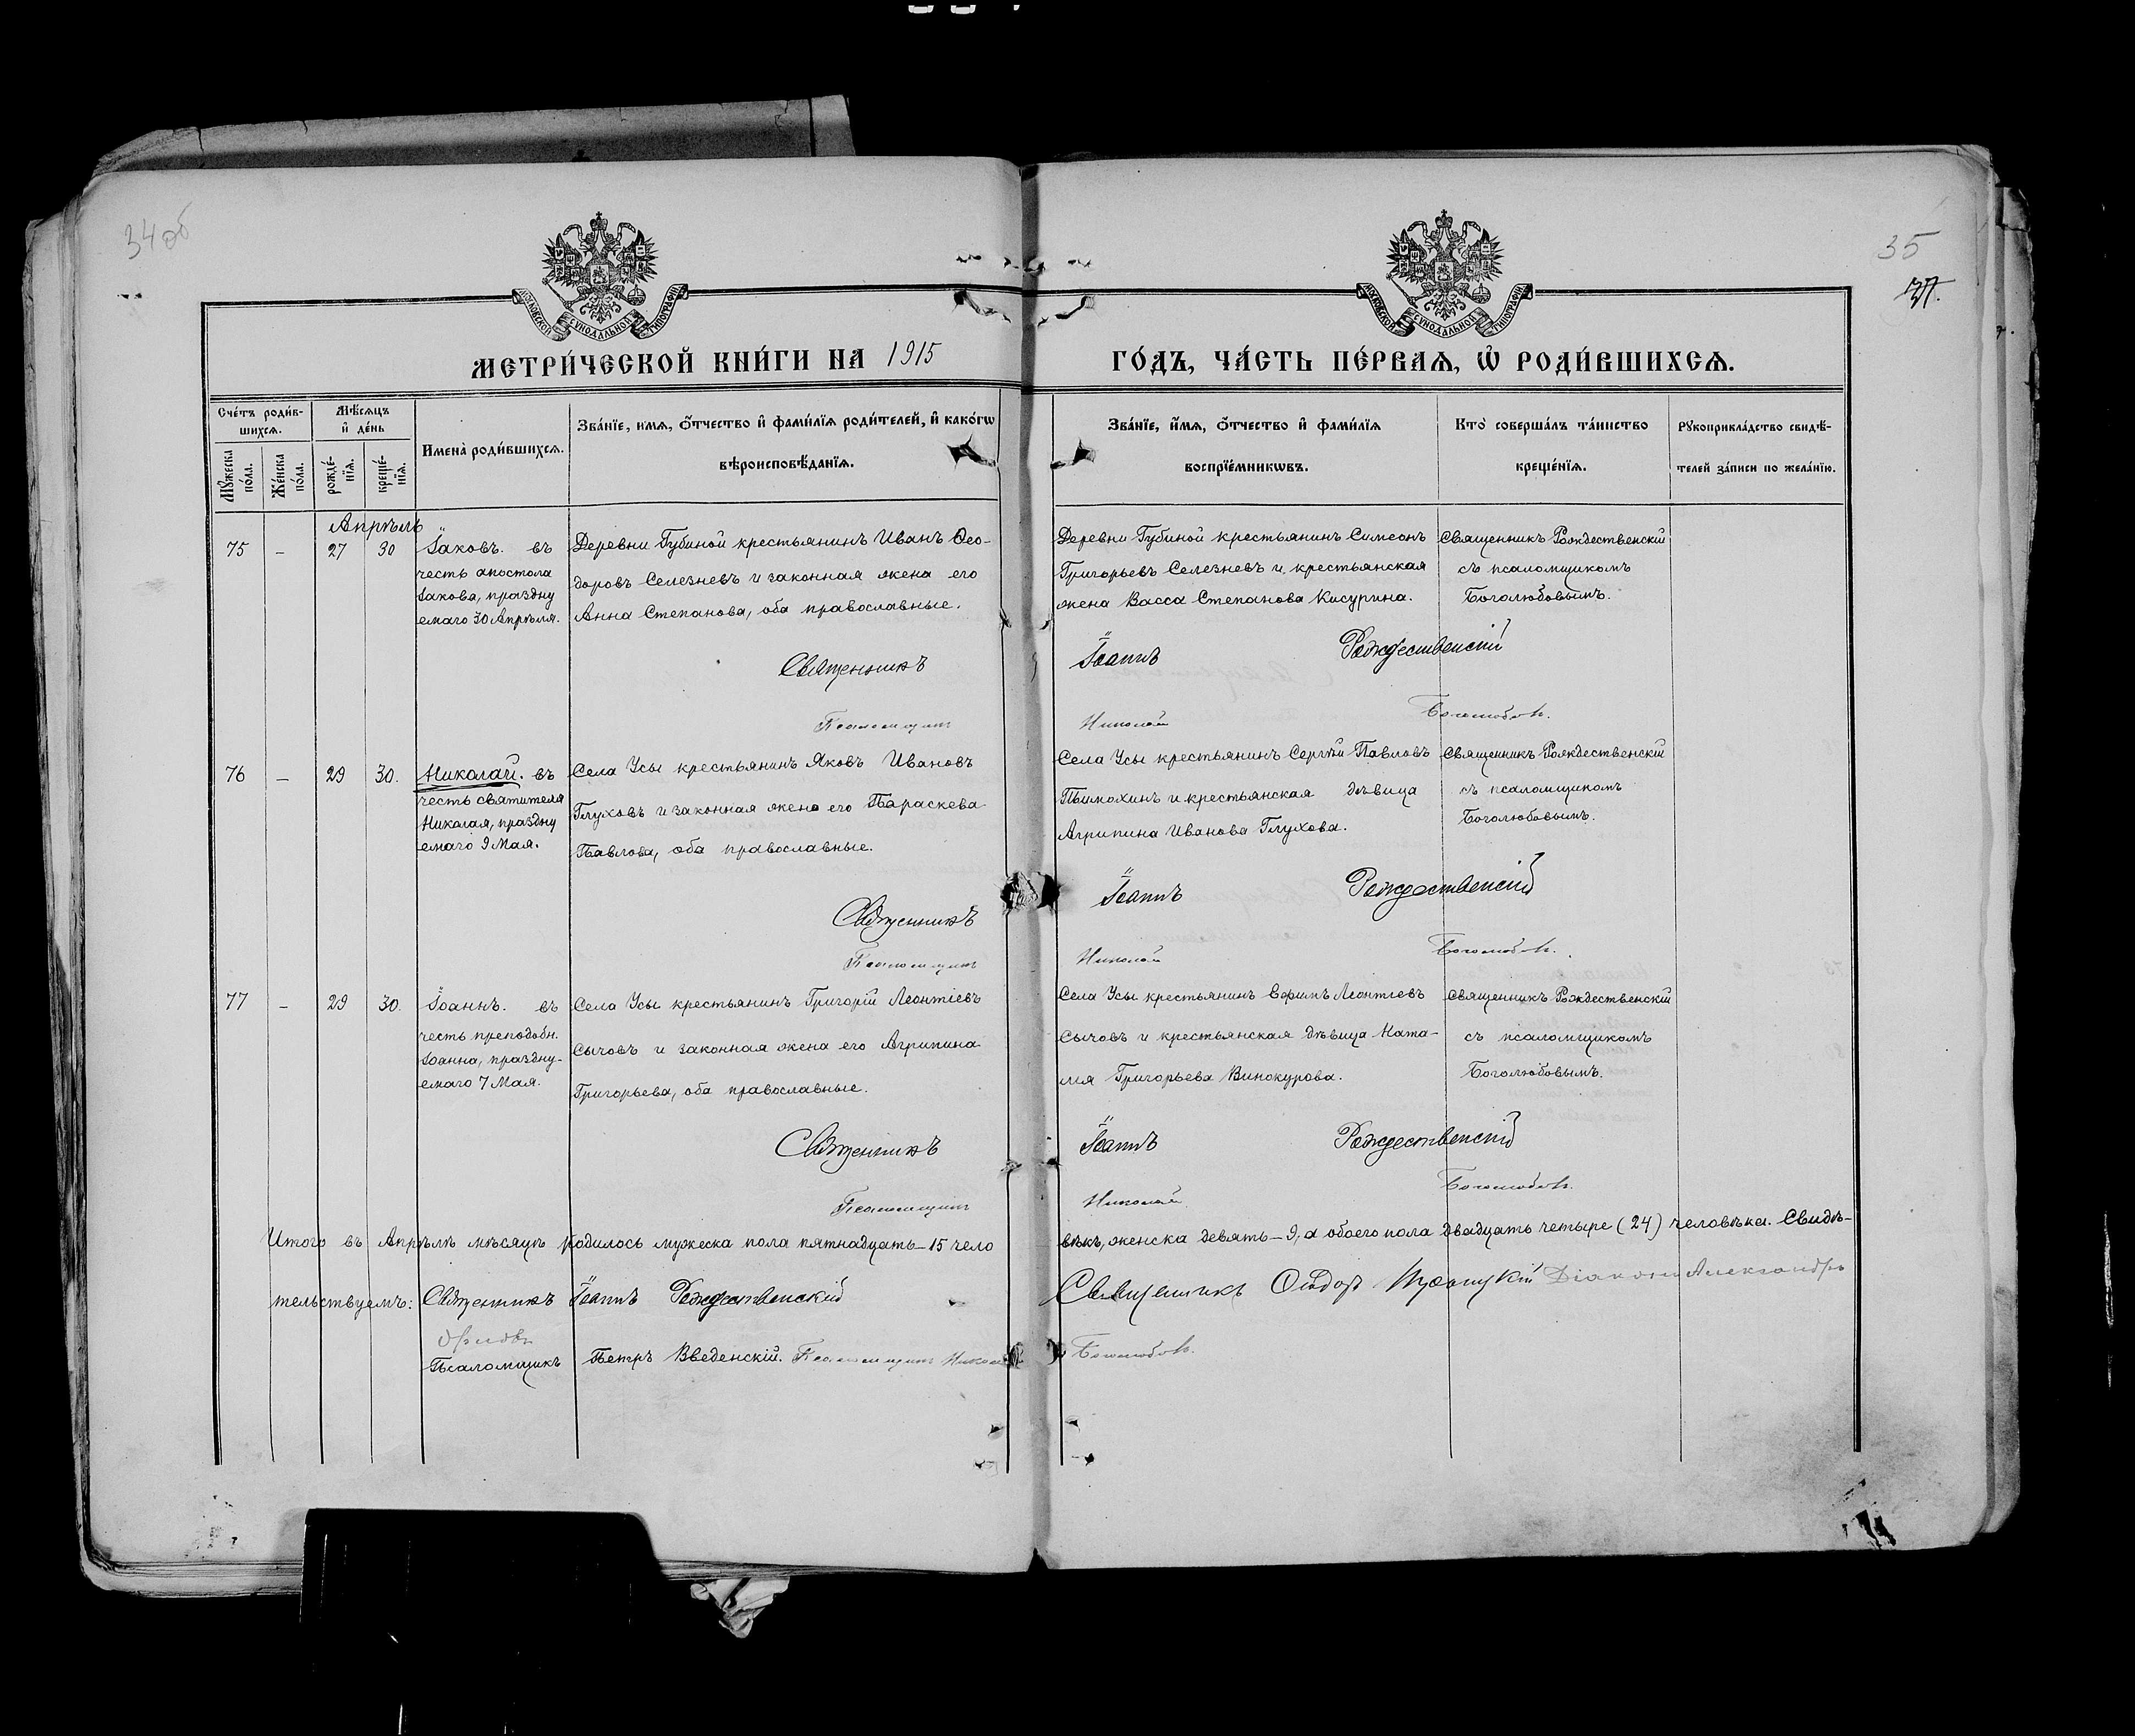 34об
35
37.
МОСКОВСКОЙ СѴНОДАЛЬНОЙ ТИПОГРАФІИ
МОСКОВСКОЙ СѴНОДАЛЬНОЙ ТИПОГРАФІИ
МЕТРИ́ЧЕСКОЙ КНИ́ГИ НА 1915
ГО́ДЪ, ЧА́СТЬ ПЕ́РВАЯ, Ѽ РОДИ́ВШИХСЯ.
Сче́тъ роди́в-
шихся.
Мѣ́сяцъ
и҆ де́нь
Мꙋ́жеска
по́ла.
Же́нска
по́ла.
рожде́-
нїя.
креще́-
нїя.
Имена̀ роди́вшихся.
Зва́нїе, и́мя, ѻ҆́тчество и҆ фами́лїя роди́телей, и҆ како́гѡ
вѣроисповѣ́данїя.
Зва́нїе, и҆́мя, ѻ҆́тчество и҆ фами́лїя
воспрїе́мникѡвъ.
Кто̀ соверша́лъ та́инство
креще́нїя.
Рꙋкоприкла́дство свидѣ́-
телей за́писи по жела́нїю.
Апрѣль
75 – 27 30 Іаковъ. въ
честь апостола
Іакова, праздну
емаго 30 Апрѣля.
Деревни Губиной крестьянинъ Иванъ Ѳео-
доровъ Селезневъ и законная жена его
Анна Степанова, оба православные.
Деревни Губиной крестьянинъ Симеонъ
Григорьевъ Селезневъ и крестьянская
жена Васса Степанова Кисурина.
Священникъ Рождественскій
съ псаломщикомъ
Боголюбовымъ.
Священникъ Іоаннъ Рождественскій
Псаломщикъ Николай Боголюбовъ.
76 – 29 30. Николай. въ
честь святителя
Николая, праздну
емаго 9 Мая.
Села Усы крестьянинъ Яковъ Ивановъ
Глуховъ и законная жена его Параскева
Павлова, оба православные.
Села Усы крестьянинъ Сергѣй Павловъ
Пимохинъ и крестьянская дѣвица
Агрипина Иванова Глухова.
Священникъ Рождественскій
съ псаломщикомъ
Боголюбовымъ.
Священникъ Іоаннъ Рождественскій
Псаломщикъ Николай Боголюбовъ.
77 – 29 30. Іоаннъ. въ
честь преподобн.
Іоанна, праздну-
емаго 7 Мая.
Села Усы крестьянинъ Григорій Леонтіевъ
Сычовъ и законная жена его Агрипина
Григорьева, оба православные.
Села Усы крестьянинъ Ефимъ Леонтіевъ
Сычовъ и крестьянская дѣвица Ната-
лія Григорьева Винокурова.
Священникъ Рождественскій
съ псаломщикомъ
Боголюбовымъ.
Священникъ Іоаннъ Рождественскій
Псаломщикъ Николай Боголюбовъ.
Итого въ Апрѣлѣ мѣсяцѣ родилось мужеска пола пятнадцать–15 чело
вѣкъ, женска девять–9, а обоего пола двадцать четыре (24) человѣка. Свидѣ-
тельствуемъ: Священникъ Іоаннъ Рождественскій
Священникъ Діаконъ Александръ
Орловъ
Псаломщикъ Петръ Введенскій. Псаломщикъ Николай
Боголюбовъ.